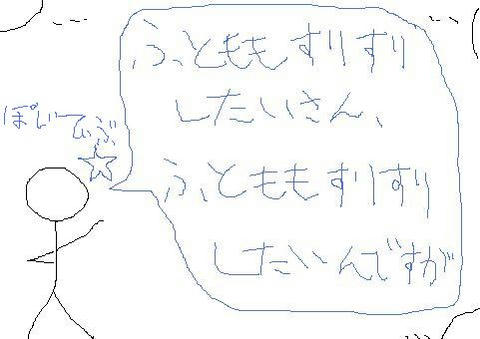 ぽじてぃぶ
ふともも すりすり
したいさん、
ふともも すりすり
したいんですが